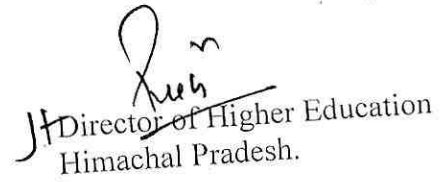 Jt Director of Higher Education
Himachal Pradesh.